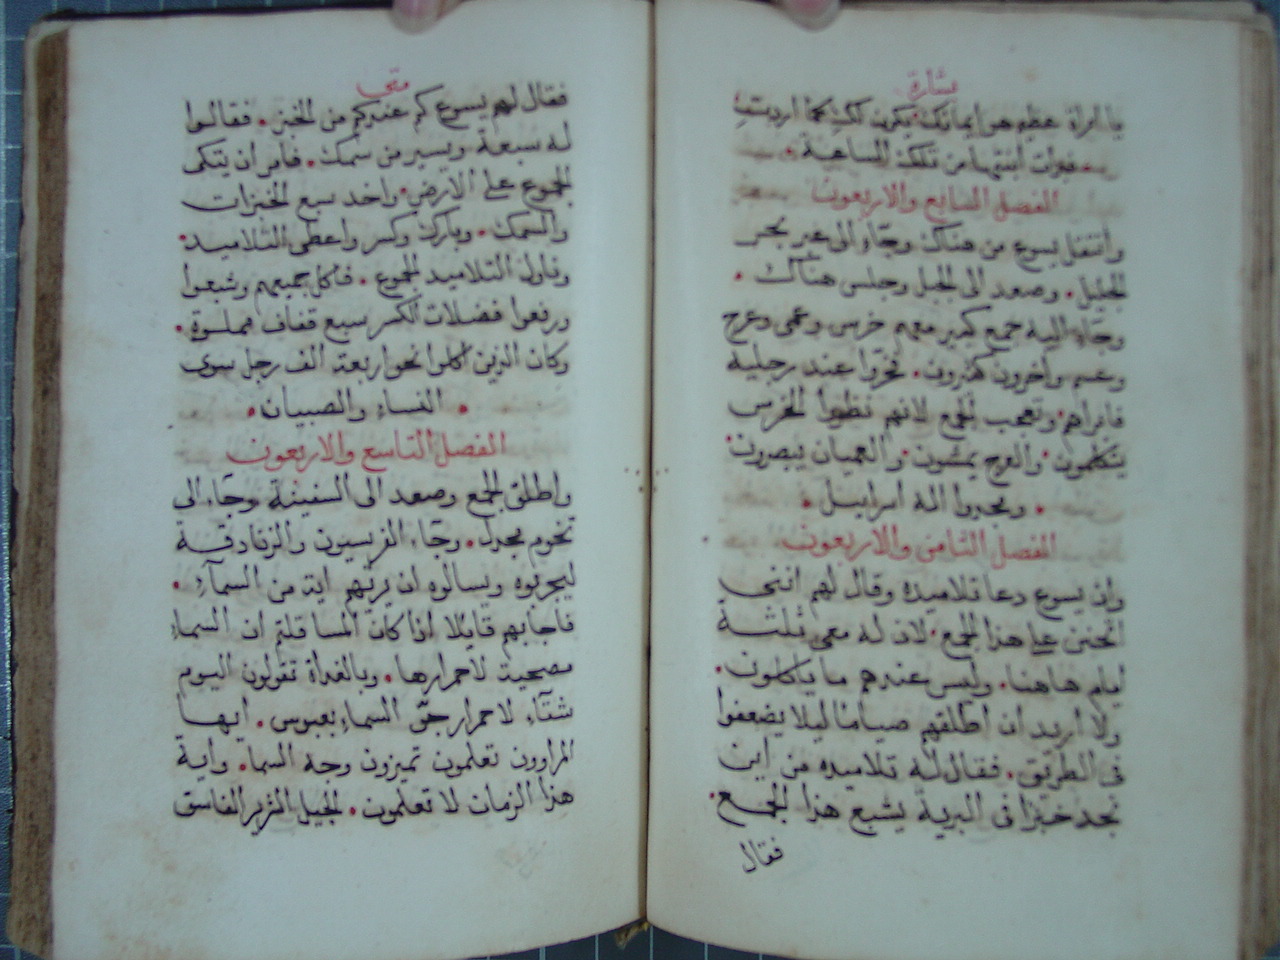 بشارة
يا امراة عظيم هو ايمانك يكون لك كما اردت
فبرات ابنتها من تلك الساعة
الفصل السابع والاربعون
وانتقل يسوع من هناك وجاء الى عبر بحر
الجليل وصعد الى الجبل وجلس هناك
وجاء اليه جمع كبير معهم خرس وعمي وعرج
وعسم واخرون كثيرون فخروا عند رجليه
فابراهم وتعجب الجمع لانهم نظروا الخرس
يتكلمون والعرج يمشون والعميان يبصرون
ومجدوا اله اسراييل
الفصل الثامن والاربعون
وان يسوع دعا تلاميذه وقال لهم انني
اتحنن على هذا الجمع لان له معي ثلثة
ايام هاهنا وليس عندهم ما ياكلون
ولا اريد ان اطلقهم صياما ليلا يضعفوا
في الطريق فقال له تلاميذه من اين
نجد خبزا في البرية يشبع هذا الجمع
فقال
متى
فقال لهم يسوع كم عندكم من الخبز فقالوا
له سبعة ويسير من سمك فامر ان يتكى
الجموع على الارض واخد سبع الخبزات
والسمك وبارك وكسر واعطى التلاميد
وناول التلاميد الجموع فاكل جميعهم وشبعوا
ورفعوا فضلات الكسر سبع قفاف مملوة
وكان الذين اكلوا نحو اربعة الف رجل سوى
النساء والصبيان
الفصل التاسع والاربعون
واطلق الجمع وصعد الى السفينة وجاء الى
تخوم مجدل وجاء الفريسيون والزنادقة
ليجربوه ويسالوه ان يريهم اية من السماء
فاجابهم قايلا اذا كان المسا قلتم ان السماء
مصحية لاحمرارها وبالغداة تقولون اليوم
شتاء لاحمرار جو السماء بعبوس ايها
المراوون تعلمون تميزون وجه السما واية
هذا الزمان لا تعلمون الجيل الشرير الفاسق